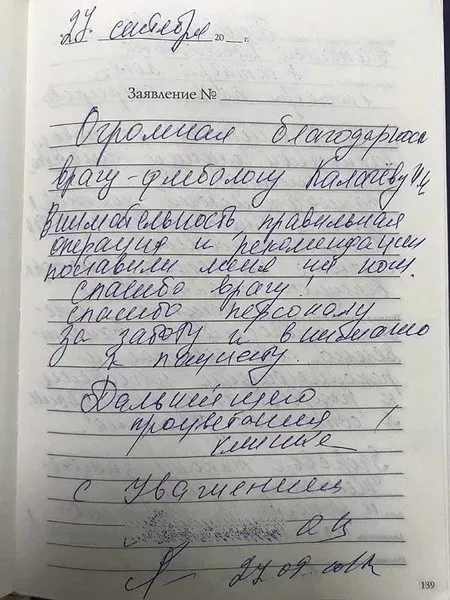 27. сентября 20__ г.
Заявление №
Огромная благодарность
врачу-флебологу Калачёву И.И.
Внимательность правильная
операция и рекомендации
поставили меня на ноги.
Спасибо врачу!
Спасибо персоналу
за заботу и внимание
к пациенту.
Дальнейшего
процветания
клинике
С уважением
27.09.
139